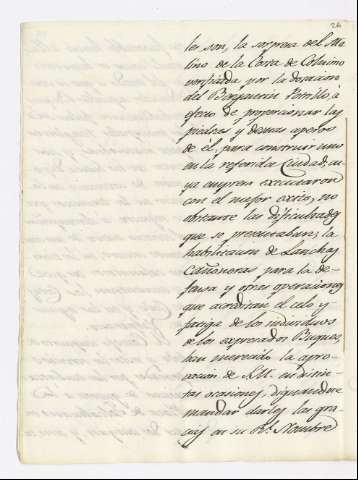 26
les son, la sorpresa del Mo-
lino de la Costa de
verificada por la dotacion
del Bergantin Potrillo, á
efecto de proporcionar las
piedras y demas aperos
de él, para construir uno
en la referida Ciudad, cu-
ya empresa executaron
con el mejor exito, no
obstante las dificultades
que se presentaban; la
habilitacion de Lanchas
Cañoneras para la de-
fensa y otras operaciones
que acreditan el celo y
fatiga de los individuos
de los expresados Buques,
han merecido la apro-
vacion de S.M. en distin-
tas ocasiones, dignandose
mandar darles las gra-
cias en su Rl. Nombre